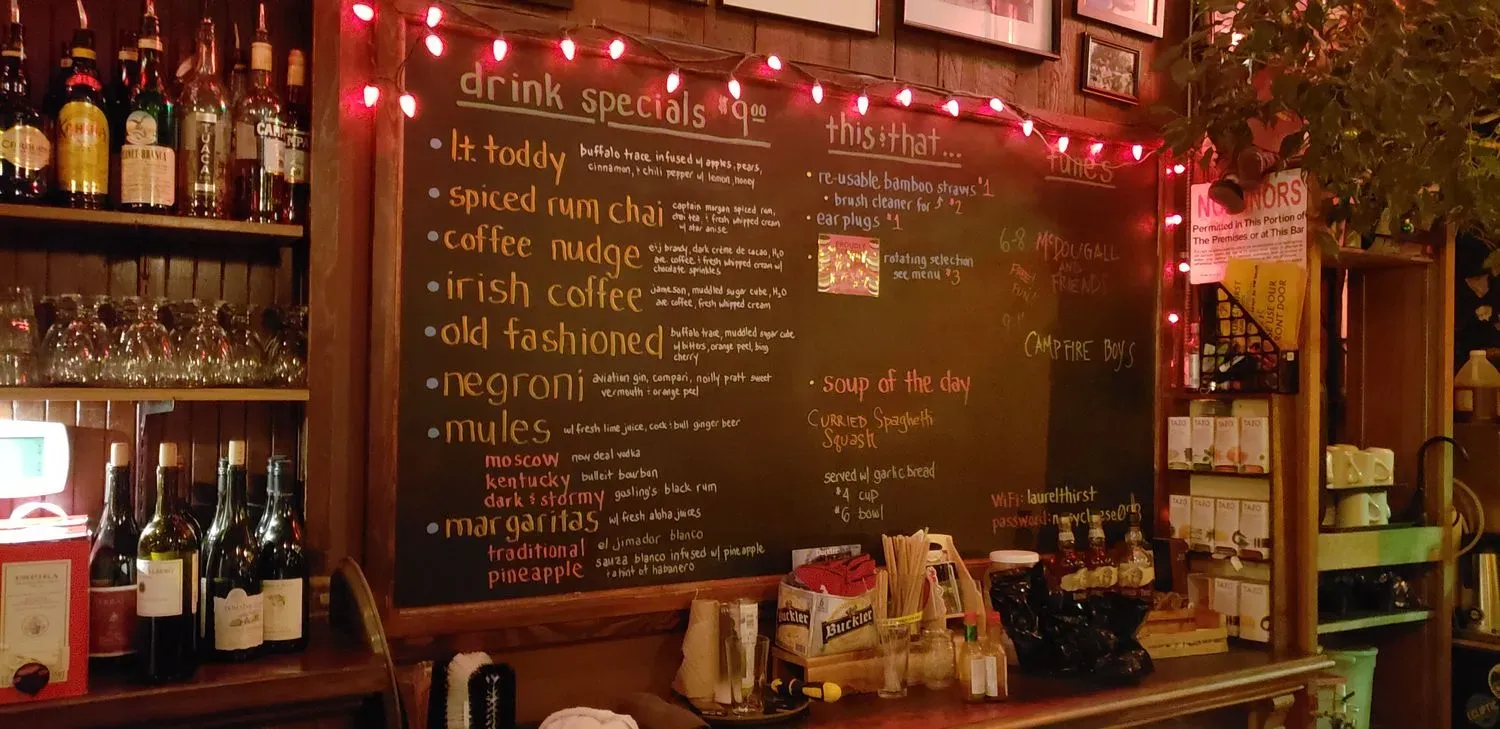 drink specials $9.00
l.t. toddy
buffalo trace infused w/ apples, pears,
cinnamon, + chili pepper w/ lemon, honey
spiced rum chai
captain morgan spiced rum,
chai tea, & fresh whipped cream
w/ star anise
coffee nudge
e&j brandy, dark crème de cacao, H₂O
ave. coffee & fresh whipped cream w/
chocolate sprinkles
irish coffee
jameson, muddled sugar cube, H₂O
ave coffee, fresh whipped cream
old fashioned
buffalo trace, muddled sugar cube
w/ bitters, orange peel, bing
cherry
negroni
aviation gin, campari, noilly pratt sweet
vermouth & orange peel
mules
w/ fresh lime juice, cock & bull ginger beer
moscow new deal vodka
kentucky bulleit bourbon
dark & stormy gosling's black rum
margaritas w/ fresh aloha juices
traditional el jimador blanco
pineapple sauza blanco infused w/ pineapple
+ a hint of habanero
this & that...
re-usable bamboo straws $1
brush cleaner for $2
ear plugs $1
PROUDLY
rotating selection
see menu $3
soup of the day
CURRIED Spaghetti
Squash
served w/ garlic bread
$4 cup
$6 bowl
tunes
6-8 McDOUGALL
AND
FRIENDS
FREE!
FUN!
CAMPFIRE BOYS
WiFi: laurelthirst
password:
MINORS
Permitted in This Portion of
The Premises or at This Bar
USE OUR
FRONT DOOR
KAHLUA
FERNET-BRANCA
TUACA
CAMPARI
Buckler
Buckler
TAZO
TAZO
TAZO
TAZO